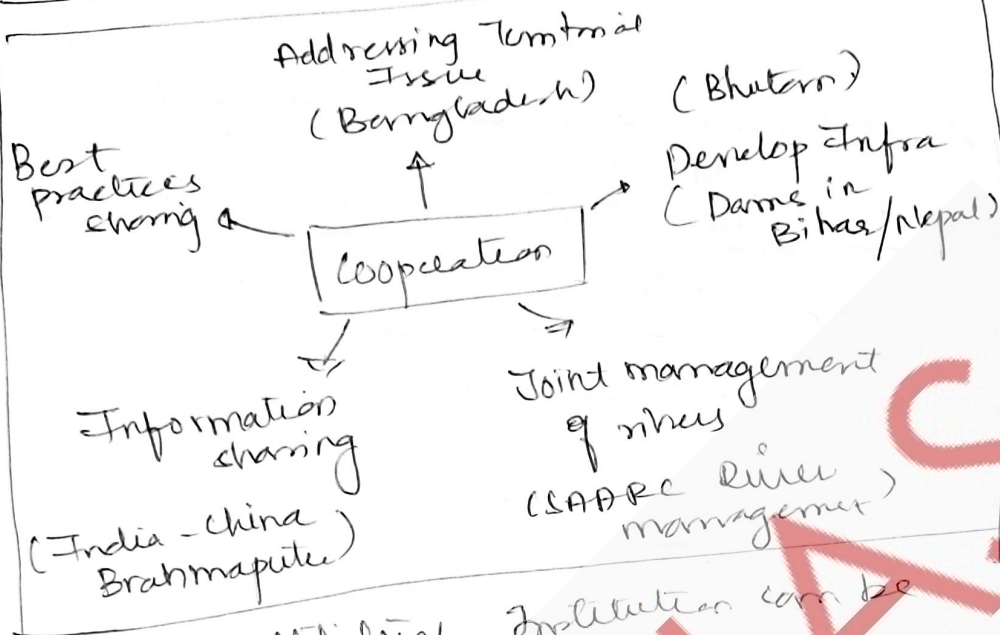 Addressing Territorial
Issue
(Bangladesh)
(Bhutan)
Develop Infra
(Dams in
Bihar/Nepal)
Best
practices
sharing
Cooperation
Information
sharing
(India - China
Brahmaputra)
Joint management
of rivers
(SAARC River
management)
Institution can be